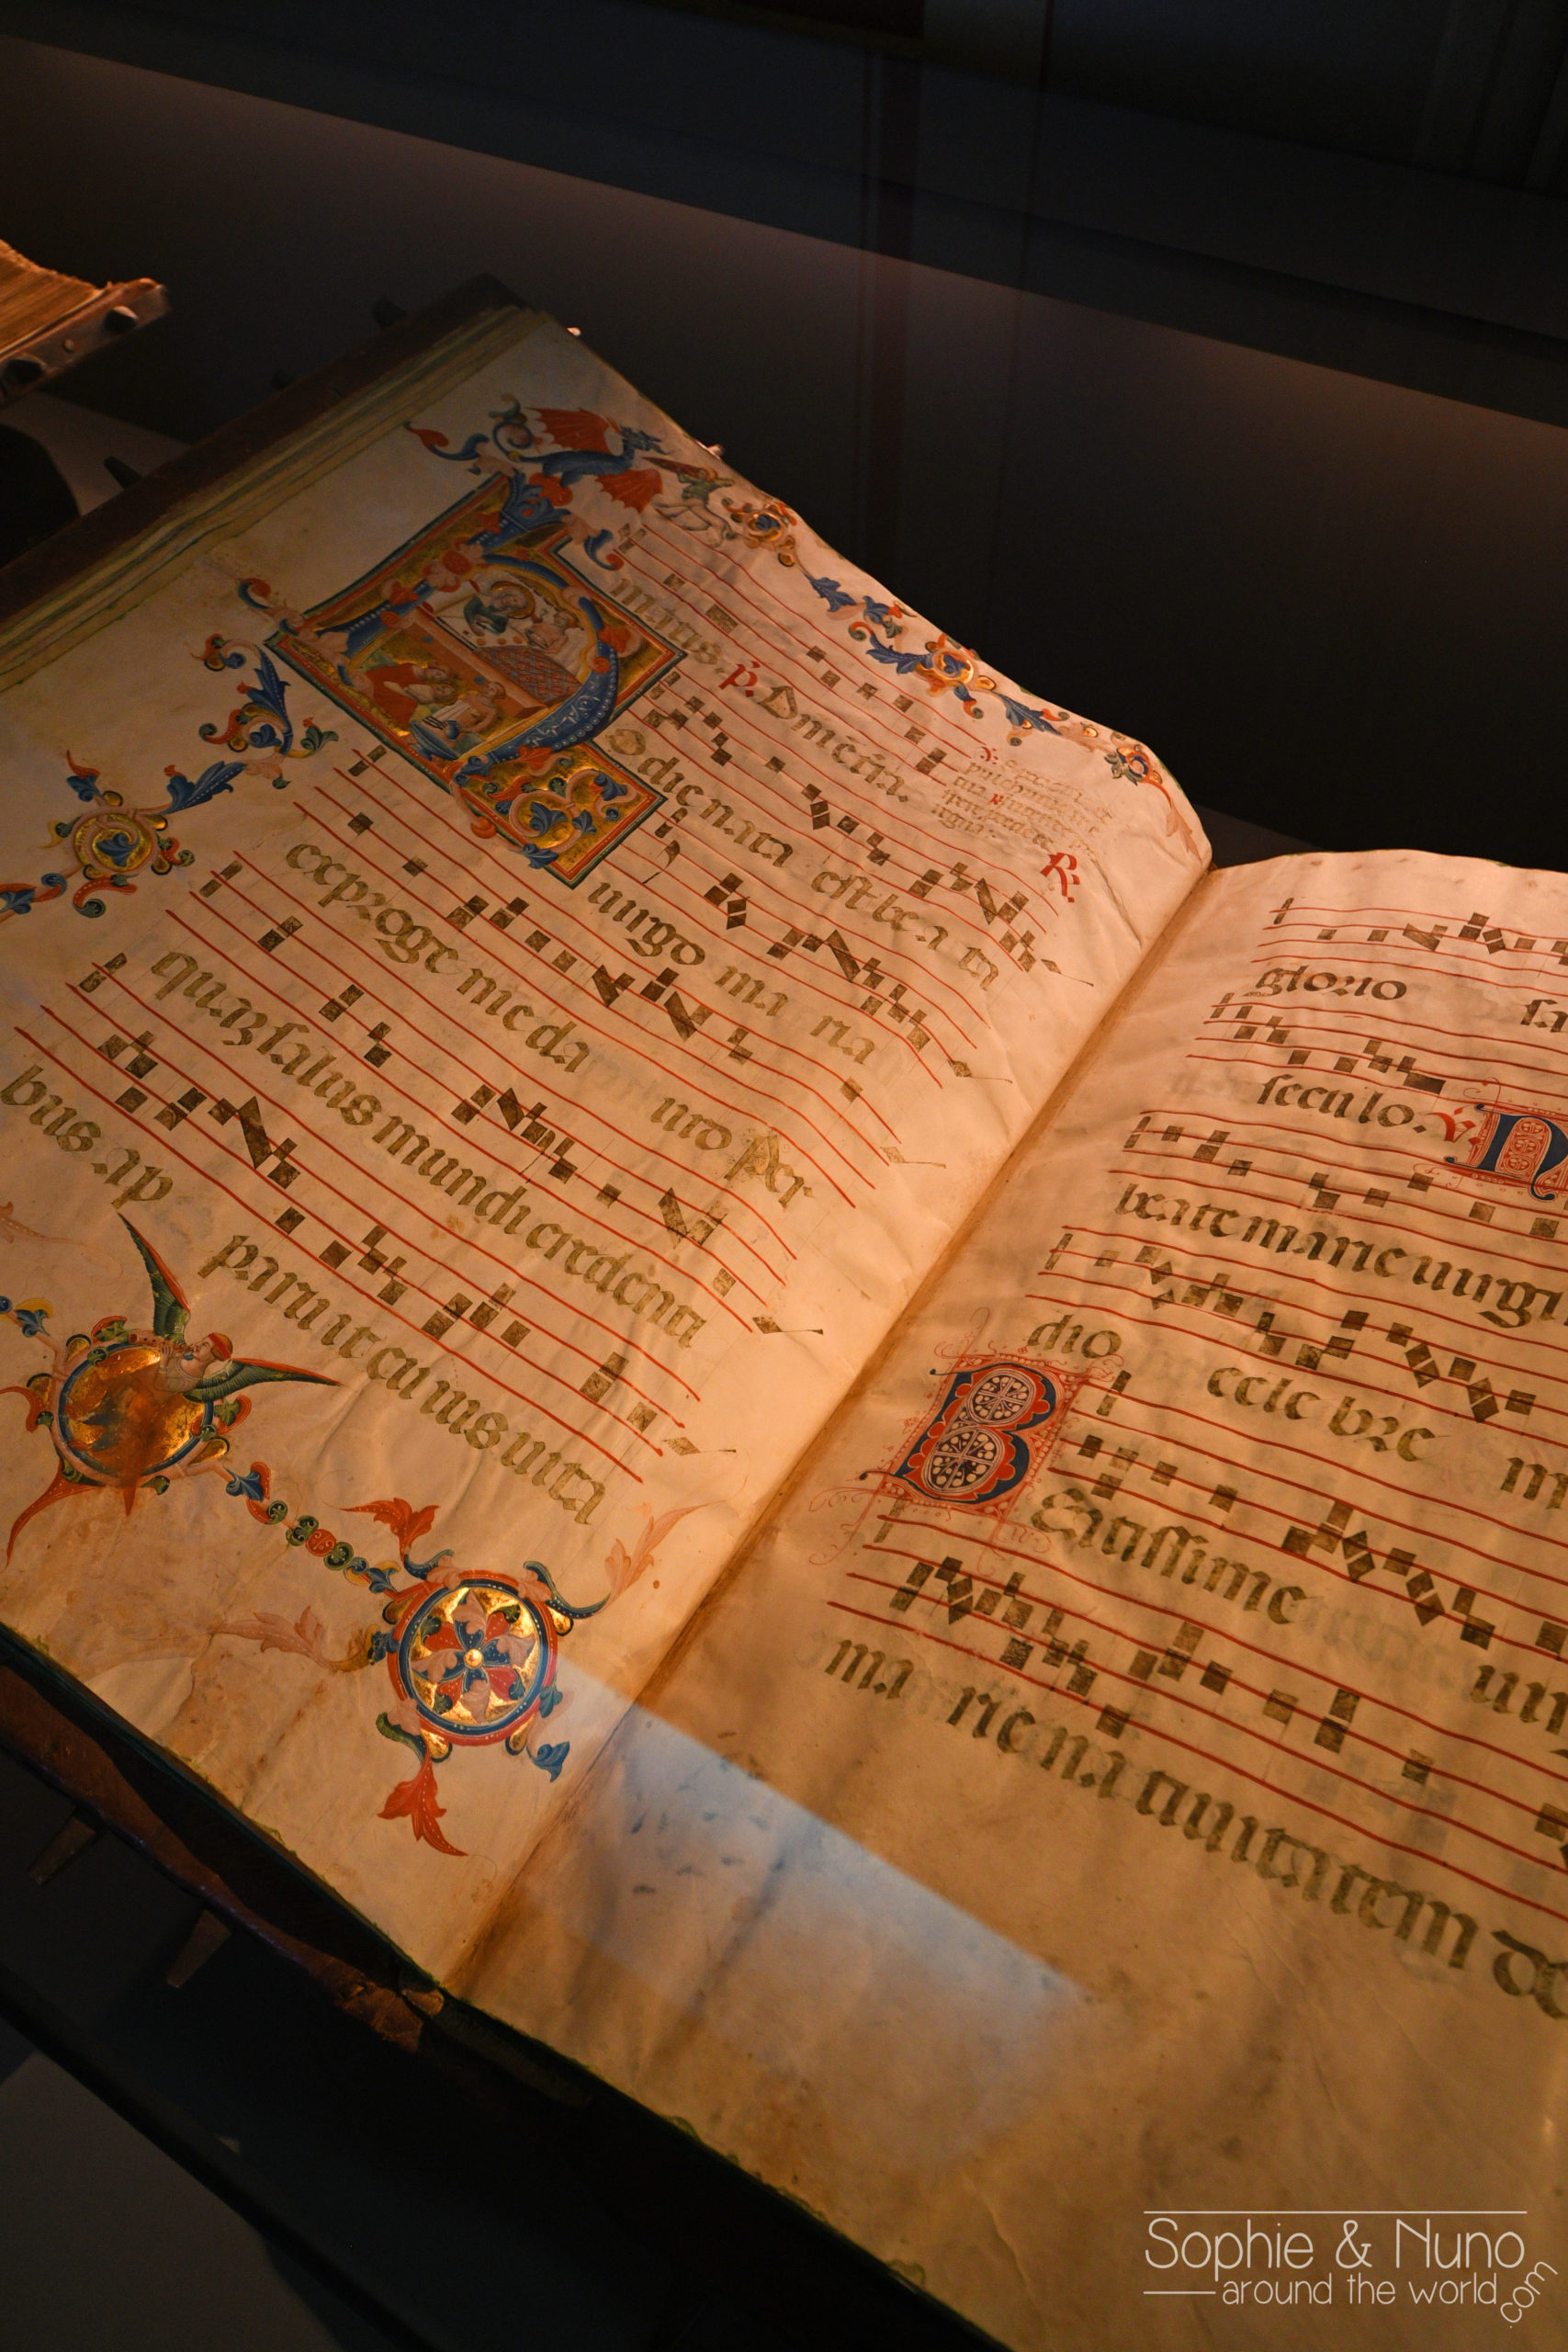 minus. p. Domeſta.
odie nata eſt bea ta
uirgo ma ria
ex p2oge nie da uid Per
quaʒ ſalus mundi creden ti
bus ap paru it cui us uita
R.
glo2io ſa
ſeculo. v. N
beate marie uirgi
dio cele b2e m
B Eatiſſime uir
ma rie na tiuita tem de
Sophie & Nuno
around the world.com